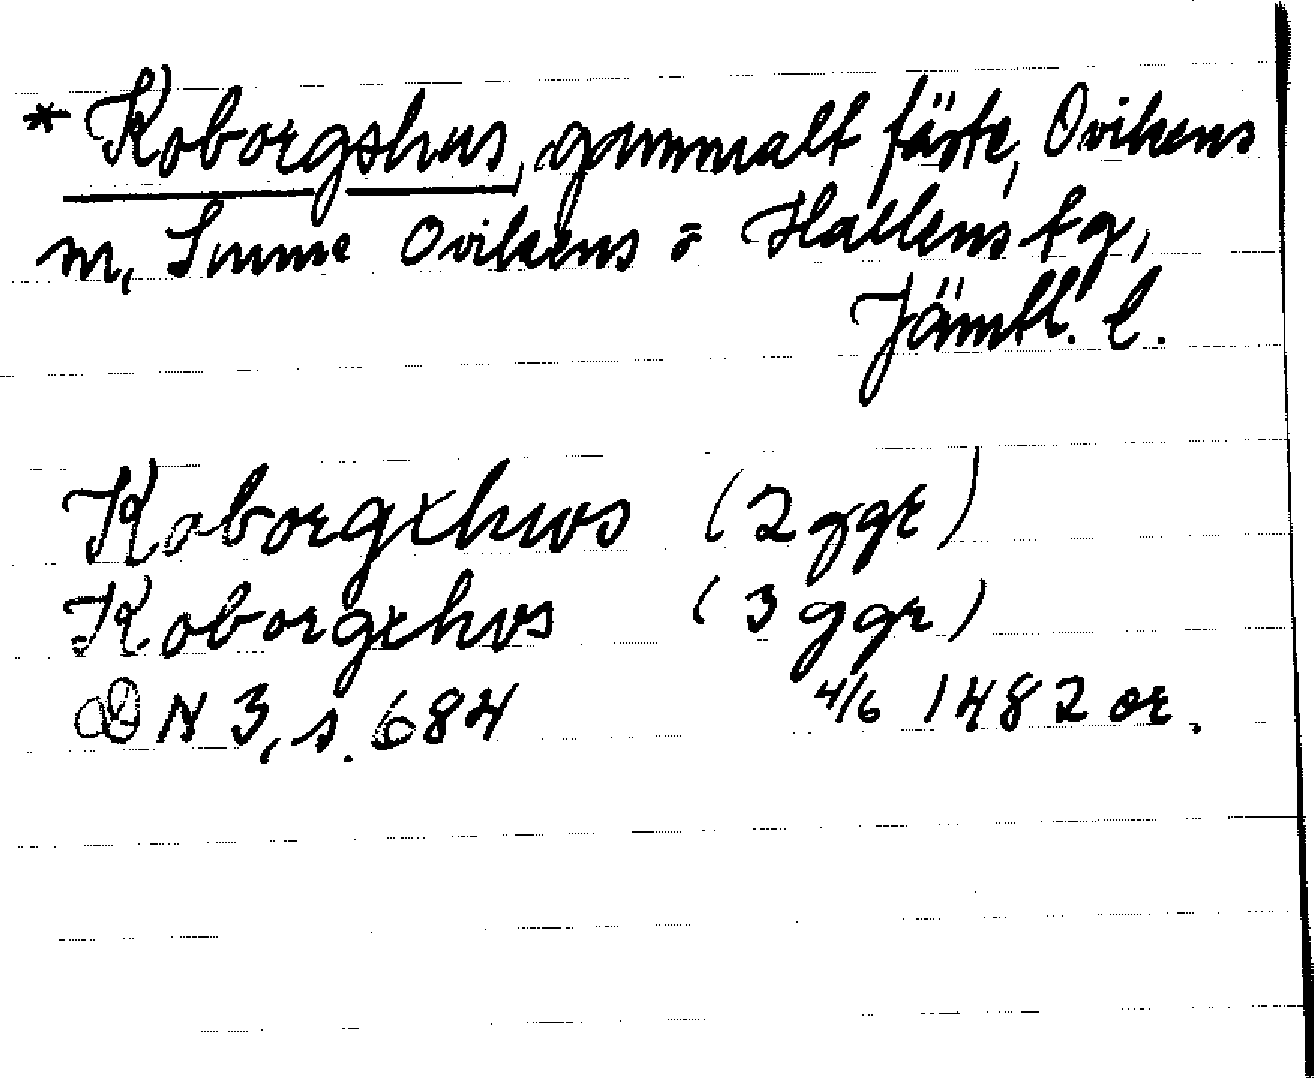 * Koborgshus, gammalt fäste, Ovikens
m, Sunne Ovikens o Hallens tg,
Jämtl. l.
Koborgxhws (2 ggr)
Koborgxhvs (3 ggr)
DN 3, s. 684 4/6 1482 or.